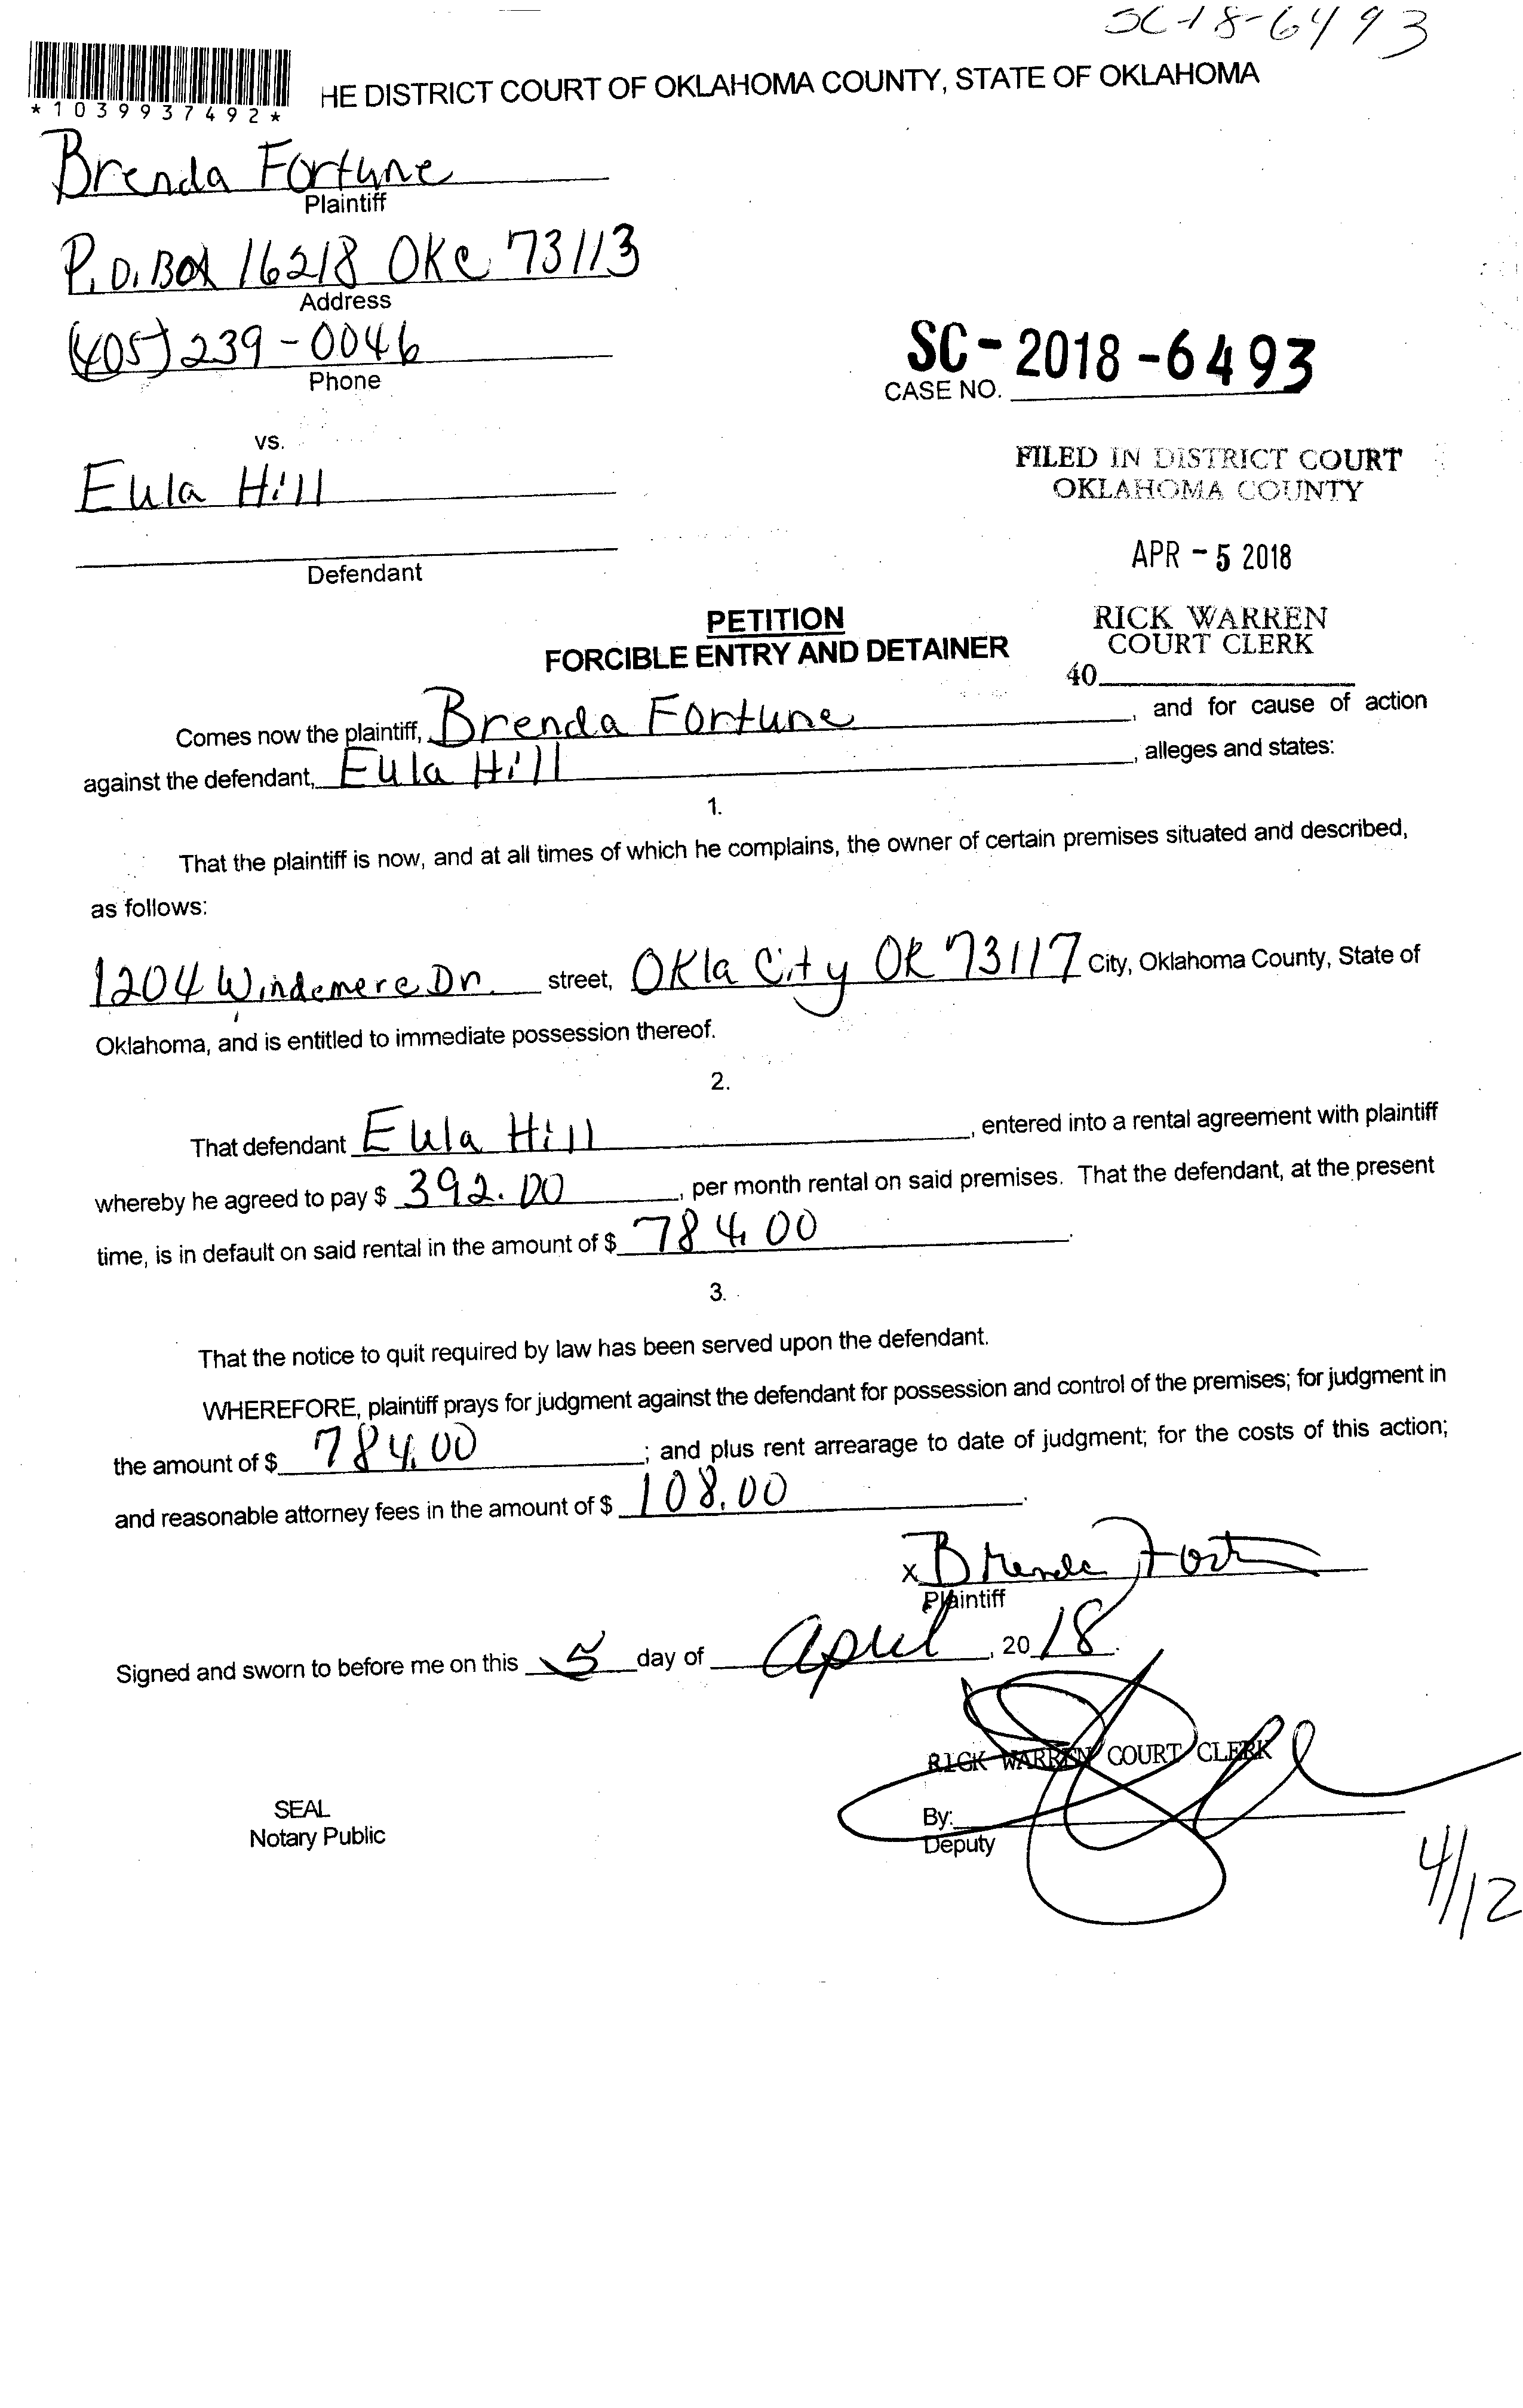 SC-18-6493
HE DISTRICT COURT OF OKLAHOMA COUNTY, STATE OF OKLAHOMA
*1039937492*
Brenda Fortune
Plaintiff
P.O. Box 16218 OKC 73113
Address
(405) 239-0046
Phone
SC-2018-6493
CASE NO.
vs.
Eula Hill
Defendant
FILED IN DISTRICT COURT
OKLAHOMA COUNTY
APR -5 2018
RICK WARREN
COURT CLERK
40
PETITION
FORCIBLE ENTRY AND DETAINER
Comes now the plaintiff, Brenda Fortune, and for cause of action
against the defendant, Eula Hill, alleges and states:
1.
That the plaintiff is now, and at all times of which he complains, the owner of certain premises situated and described,
as follows:
1204 Windemere Dr. street, Okla City OK 73117 City, Oklahoma County, State of
Oklahoma, and is entitled to immediate possession thereof.
2.
That defendant Eula Hill, entered into a rental agreement with plaintiff
whereby he agreed to pay $ 392.00, per month rental on said premises. That the defendant, at the present
time, is in default on said rental in the amount of $ 784.00.
3.
That the notice to quit required by law has been served upon the defendant.
WHEREFORE, plaintiff prays for judgment against the defendant for possession and control of the premises; for judgment in
the amount of $ 784.00; and plus rent arrearage to date of judgment; for the costs of this action;
and reasonable attorney fees in the amount of $ 108.00.
x Brenda Fortune
Plaintiff
Signed and sworn to before me on this 5 day of April, 2018.
RICK WARREN COURT CLERK
SEAL
Notary Public
By:
Deputy
4/12